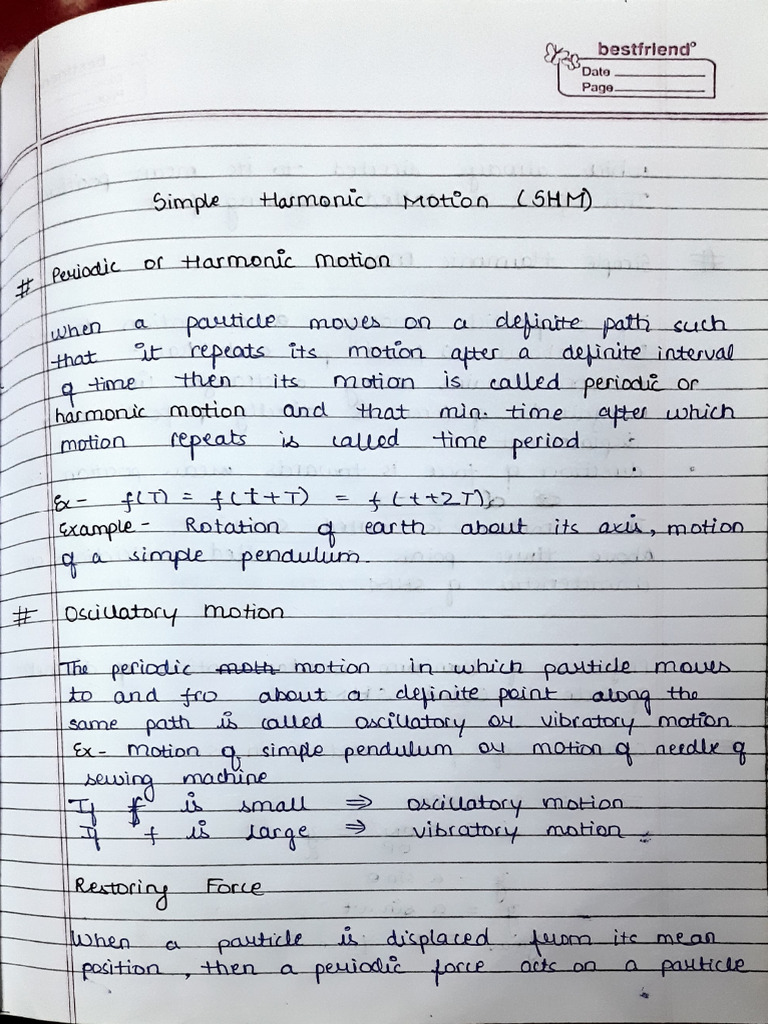 bestfriend°
Date
Page
Simple Harmonic Motion (SHM)
# Periodic or Harmonic motion
When a particle moves on a definite path such
that it repeats its motion after a definite interval
of time then its motion is called periodic or
harmonic motion and that min. time after which
motion repeats is called time period
Ex- f(T) = f(t+T) = f(t+2T)
Example- Rotation of earth about its axis, motion
of a simple pendulum.
# Oscillatory motion
The periodic moth motion in which particle moves
to and fro about a definite point along the
same path is called oscillatory or vibratory motion
Ex- motion of simple pendulum or motion of needle of
sewing machine
If f is small ⇒ oscillatory motion
If f is large ⇒ vibratory motion
Restoring Force
When a particle is displaced from its mean
position, then a periodic force acts on a particle